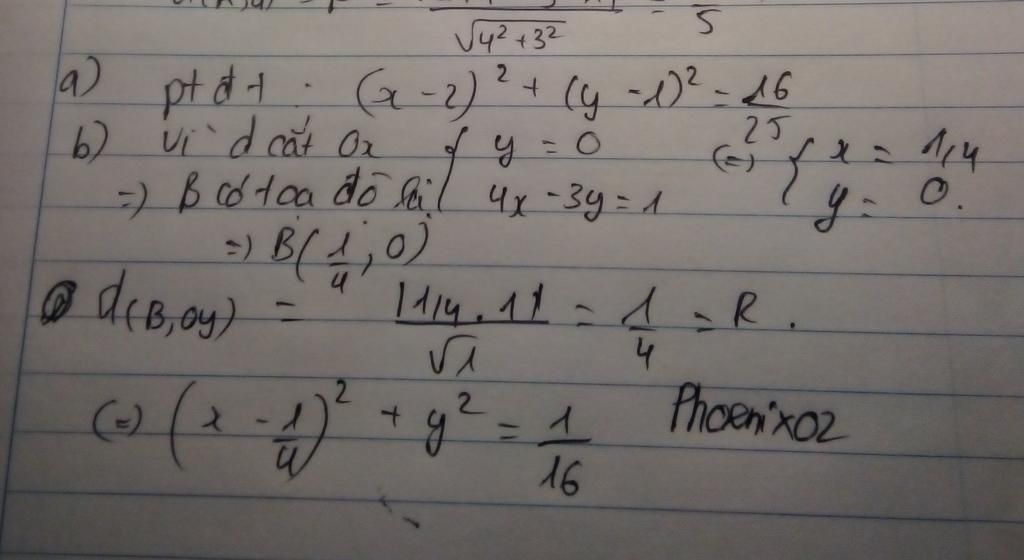 √4² + 3² 5
a) ptđt : (x - 2)² + (y - 1)² = 16/25
b) Vì d cắt Ox { y = 0 (=) { x = 1/4
=) B có toạ độ là { 4x - 3y = 1 y = 0.
=) B(1/4, 0)
d(B, Oy) = |1/4 . 1| / √1 = 1/4 = R .
(=) (x - 1/4)² + y² = 1/16 Phoenix02